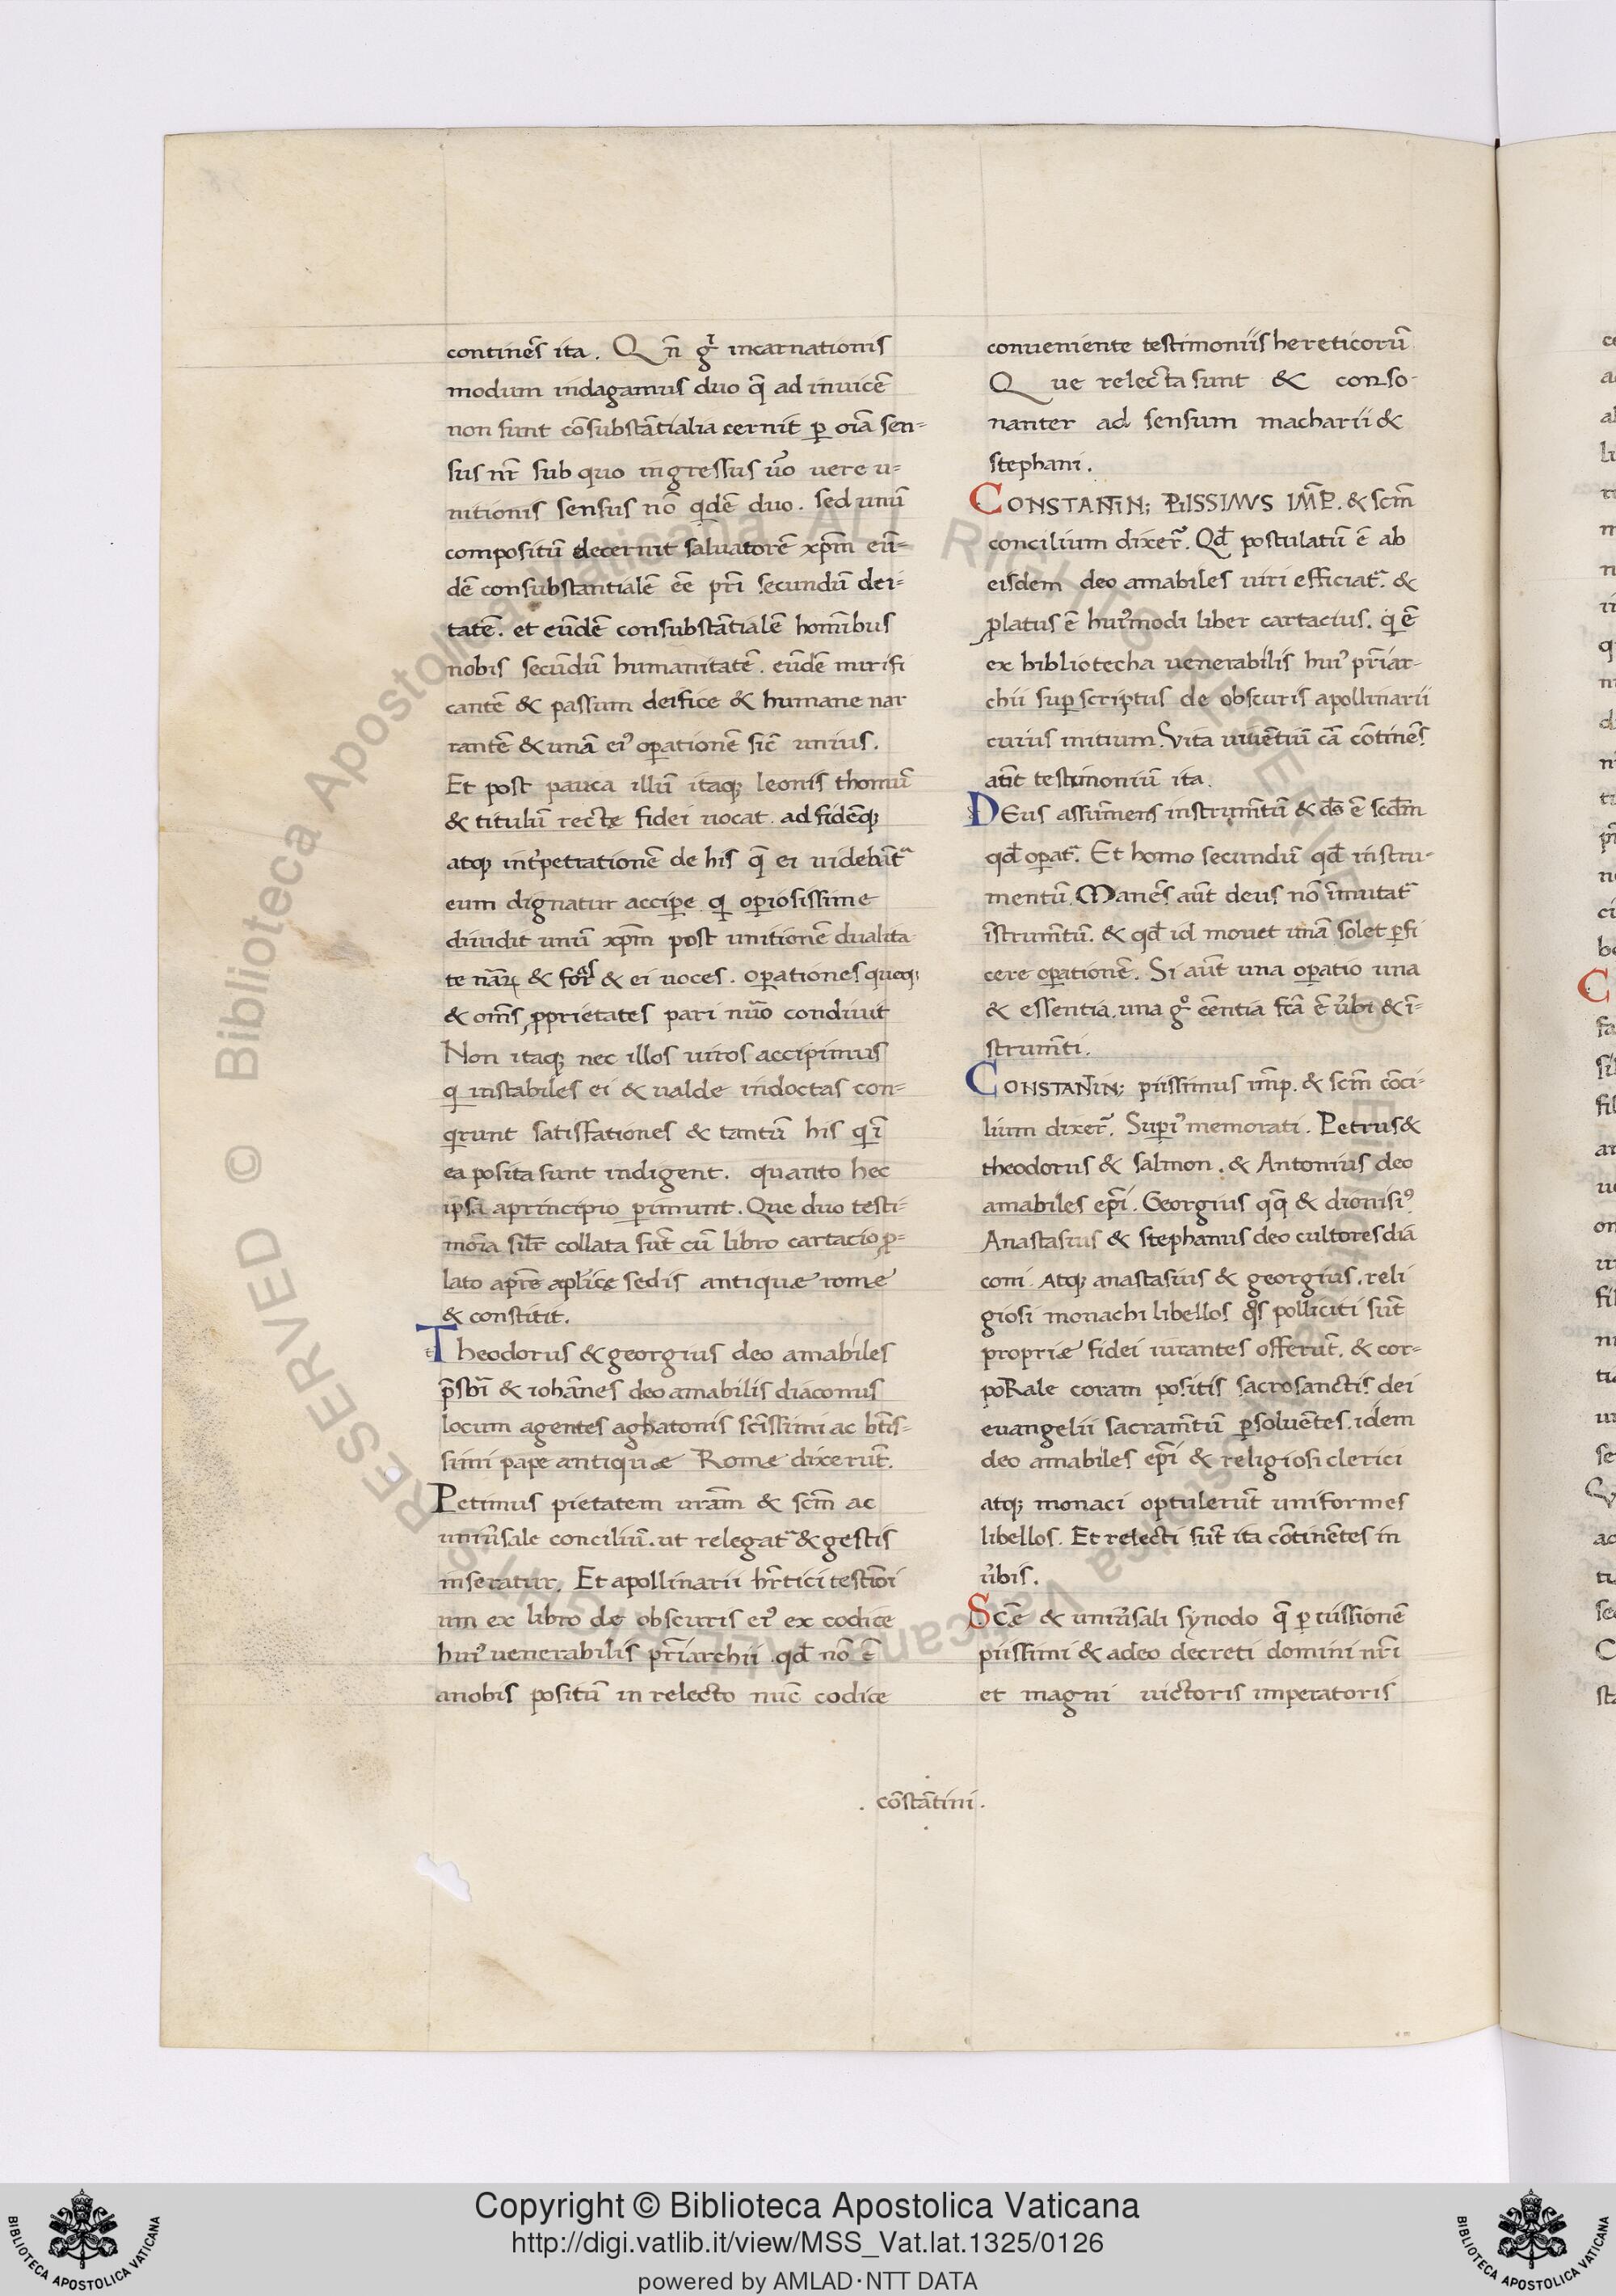 contine͂s ita. Q n̄ gͥ incarnationis
modum indagamus duo q̄ ad inuicē
non sunt cōsubstātialia cernit ꝑ oīa sen=
sus nr̄ sub quo ingressus u͂o uere u=
nitionis sensus nō qͥdē duo. sed unū
compositū decernit saluatorē xp̄m eū=
dē consubstantialē eē pr̄i secundū dei=
tatē. et eūdē consubstātialē homībus
nobis secūdū humanitatē. eūdē mirifi
cantē & passum deifice & humane nar
rantē & unā eiꝰ oꝑationē sic̄ unius.
Et post pauca illū itaqꝫ leonis thomū
& titulū recte fidei uocat. ad fidēqꝫ
atqꝫ int̓pretationē de his q̄ ei uidebāt᷑
eum dignatur acciꝑe qͥ oꝑiosissime
diuidit unū xp̄m post unitionē dualita
te nāꝝ & for̄as & ei uoces. oꝑationes queqꝫ
& om̄s ꝓprietates pari nūo condiuit
Non itaqꝫ nec illos uiros accipimus
qͥ instabiles ei & ualde indoctas con=
qͥrunt satisfationes & tantū his qͥ ī
ea posita sunt indigent. quanto hec
ip̄sa aprincipio ꝑimunt. Que duo testi=
mōia sil̄r collata sūt cū libro cartacio ꝓ=
lato apr̄e apl̄ice sedis antiquæ rome
& constitit.
Theodorus & georgius deo amabiles
p̄sbr̄i & iohānes deo amabilis diaconus
locum agentes aghatonis scīssimi ac bt̄is=
simi pape antiquæ Rome dixerūt.
Petimus pietatem ur̄am & scm̄ ac
uniu̓sale conciliū. ut relegat᷑ & gestis
inseratur. Et apollinarii hr̄tici testīoi
um ex libro de obscuris eiꝰ ex codice
huiꝰ uenerabilis pr̄iarchii. qd̄ nō ē
anobis positū in relecto nūc codice
conueniente testimoniis hereticorū
Q ue relecta sunt & conso-
nanter ad sensum macharii &
stephani.
CONSTANTIN; PIISSIMVS IM̄P. & scm̄
concilium dixer᷑. Qd̄ postulatū ē ab
eisdem deo amabiles uiri efficiat᷑. &
ꝓlatus ē huiꝰmodi liber cartacius. qͥ ē
ex bibliotecha uenerabilis huiꝰ pr̄iar-
chii suꝑscriptus de obscuris apollinarii
cuius initium. Vita uiuētiū cā cōtinēs
aūt testimoniū ita.
DEus assūmens instrum̄tū & ds̄ ē scd̄m
qd̄ oꝑat᷑. Et homo secundū qd̄ instru-
mentū. Manēs aūt deus nō īmutat᷑
īstrum̄tū. & qd̄ id mouet unā solet ꝑfi
cere oꝑationē. Si aūt una oꝑatio una
& essentia. una gͦ eēntia fcā ē u̓bi & ī=
strum̄ti.
CONSTANTIN; piissimus im̄p. & scm̄ cōci-
lium dixer᷑. Suꝑiꝰ memorati. Petrus &
theodorus & salmon. & Antonius deo
amabiles ep̄i. Georgius qq̄ & dionisiꝰ
Anastasius & stephanus deo cultores dia
coni. Atqꝫ anastasius & georgius. reli
giosi monachi libellos qͦs polliciti sūt
propriæ fidei iurantes offerūt. & cor-
poRale coram positis sacrosanctis dei
euangelii sacram̄tū ꝑsoluētes. idem
deo amabiles ep̄i & religiosi clerici
atqꝫ monaci optulerūt uniformes
libellos. Et relecti sūt ita cōtinētes in
u̓bis.
Scē & uniu̓sali synodo q̄ ꝑ iussionē
piissimi & adeo decreti domini nr̄i
et magni uictoris imperatoris
. cōstātini .
© Biblioteca Apostolica Vaticana ALL RIGHTS RESERVED
Copyright © Biblioteca Apostolica Vaticana
http://digi.vatlib.it/view/MSS_Vat.lat.1325/0126
powered by AMLAD·NTT DATA
BIBLIOTECA APOSTOLICA VATICANA
BIBLIOTECA APOSTOLICA VATICANA